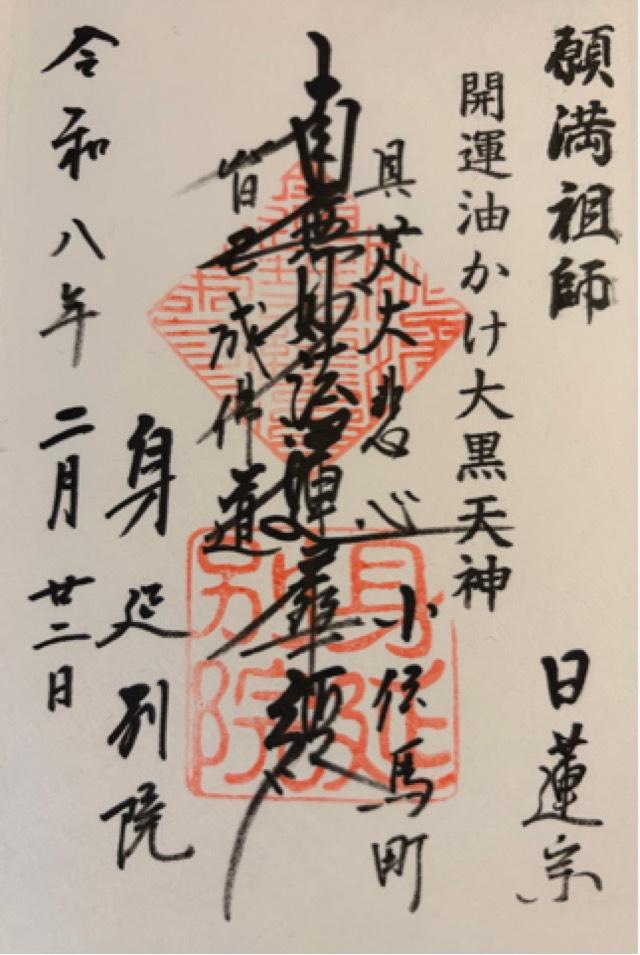 願満祖師
日蓮宗
開運油かけ大黒天神
具足大悲心
小伝馬町
南無妙法蓮華経
皆已成佛道
身延別院
令和八年二月廿二日
身延別院